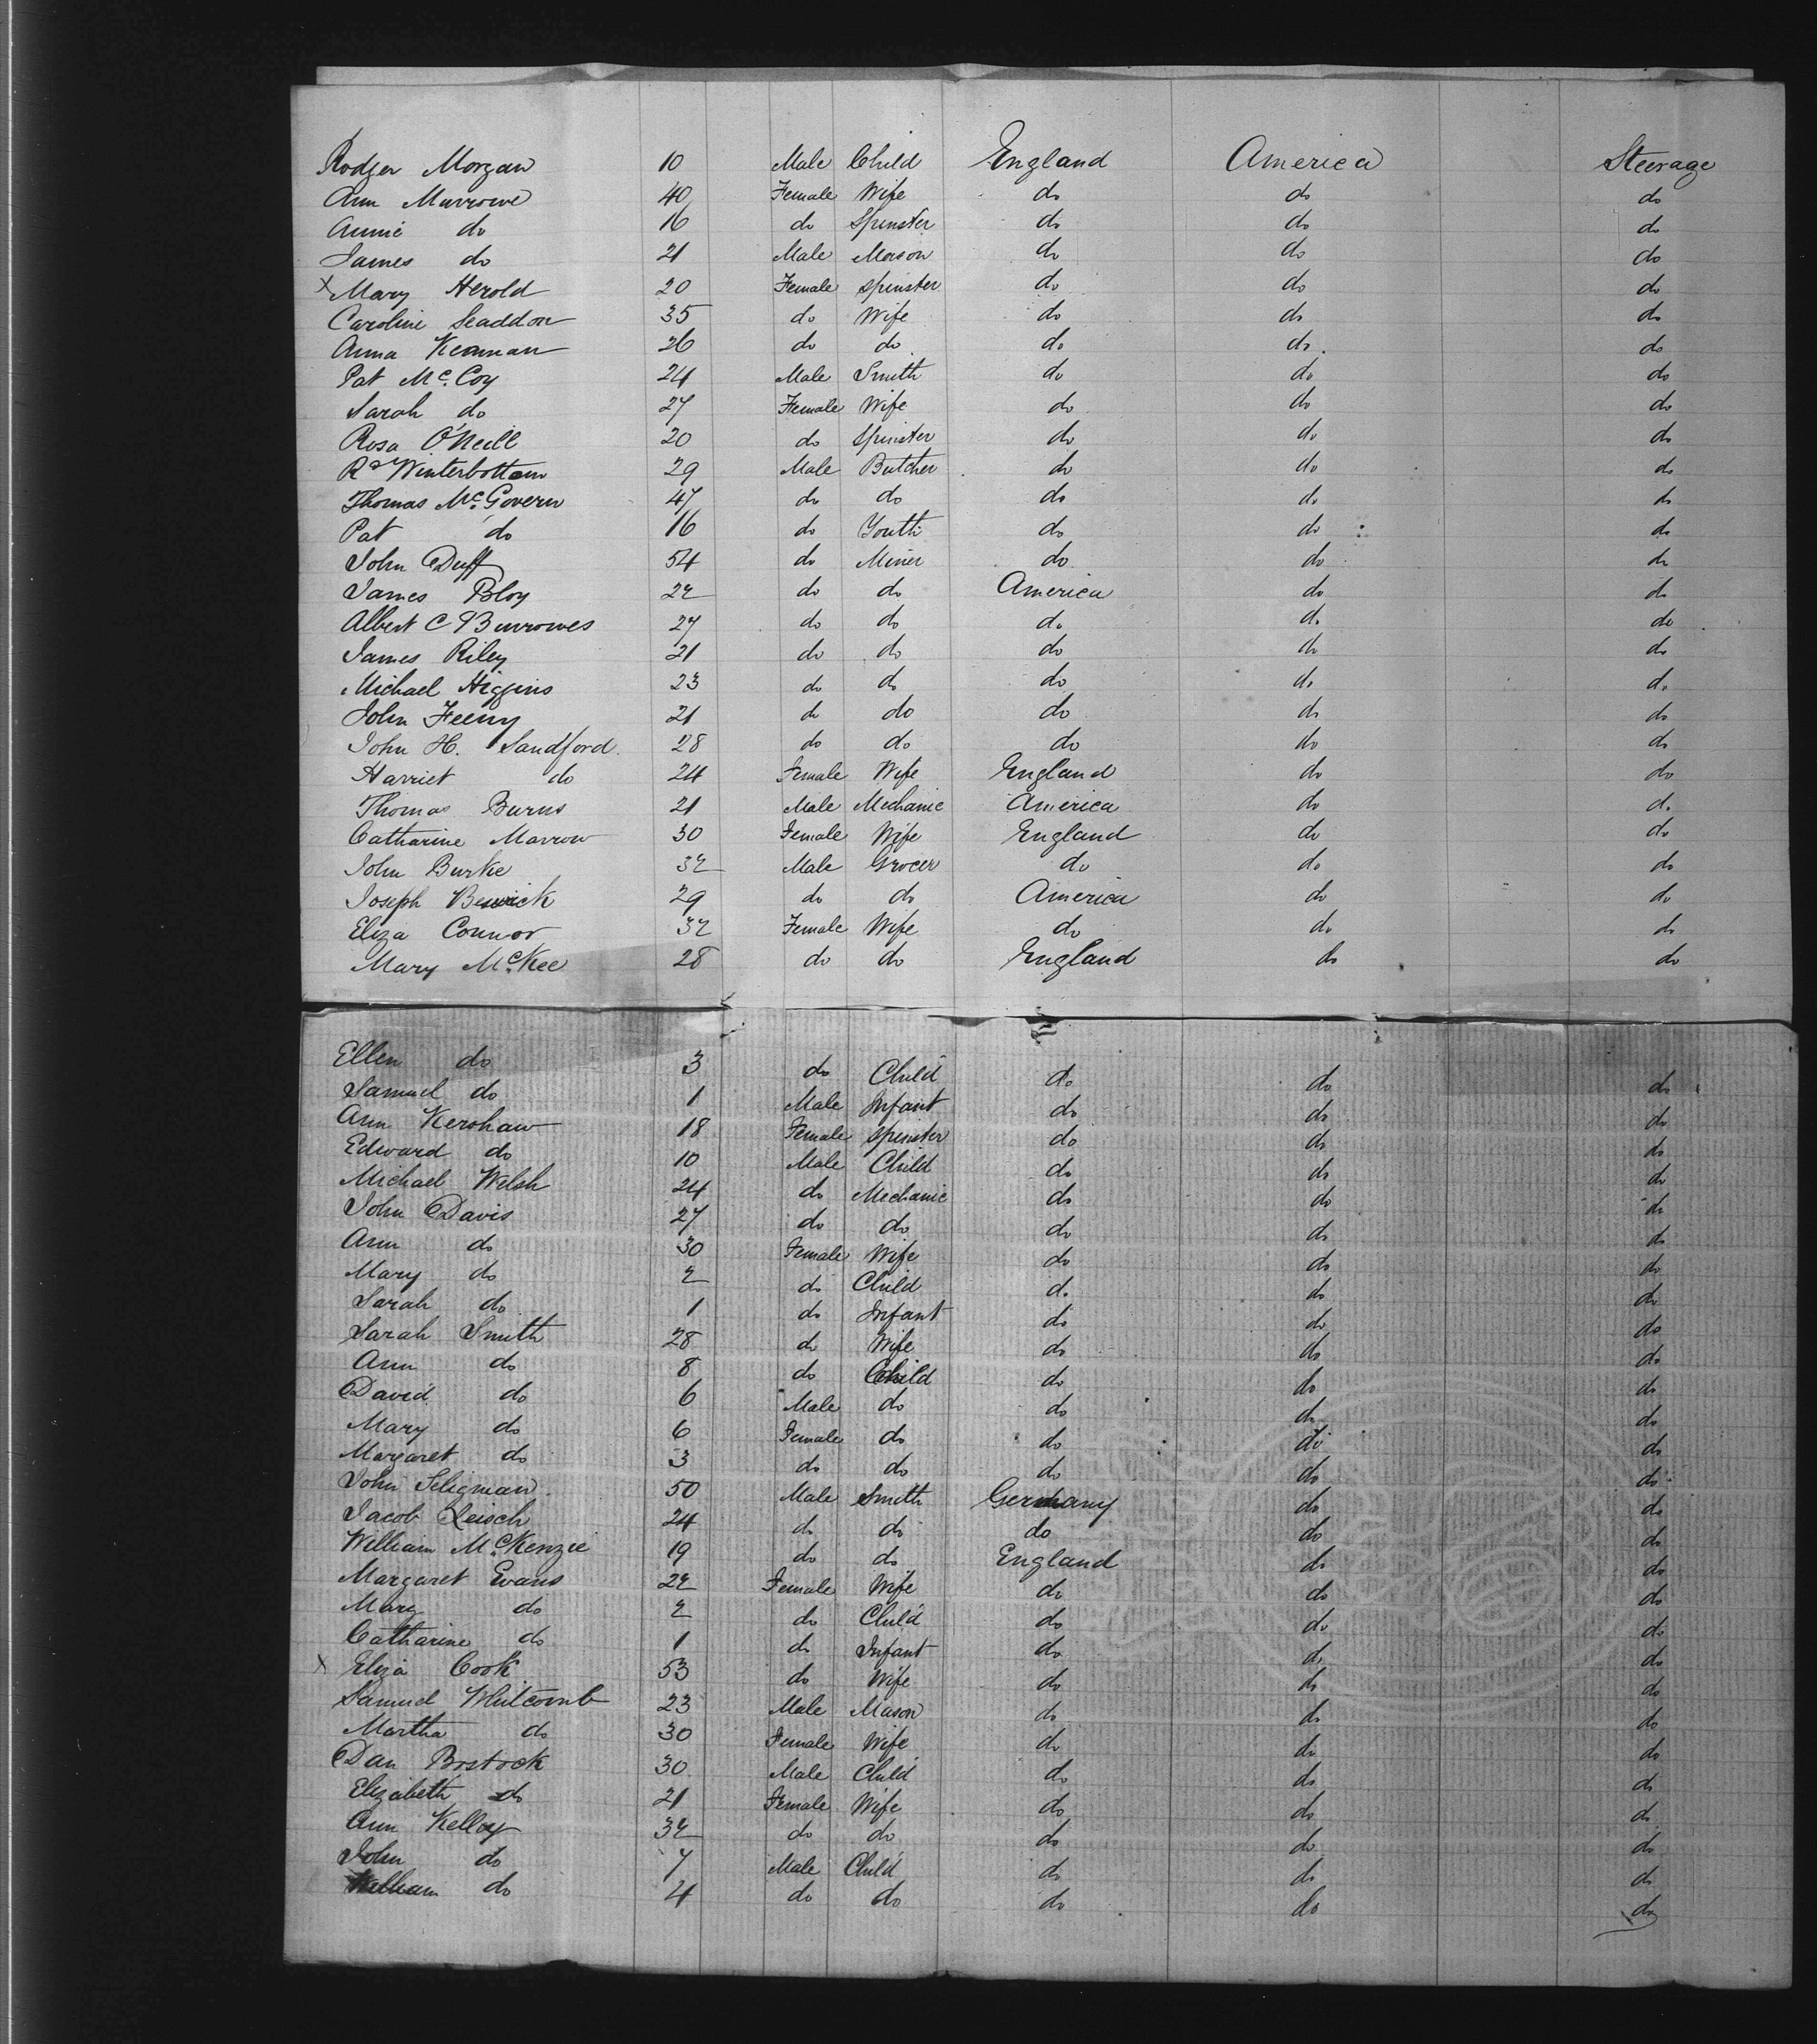 Rodger Morgan 10 Male Child England America Steerage
Ann Murrowe 40 Female Wife do do do
Annie do 16 do Spinster do do do
James do 21 Male Mason do do do
x Mary Herold 20 Female Spinster do do do
Caroline Seaddon 35 do Wife do do do
Anna Keonnan 26 do do do do do
Pat Mc. Coy 24 Male Smith do do do
Sarah do 27 Female Wife do do do
Rosa O'Neill 20 do Spinster do do do
Rd Winterbottom 29 Male Butcher do do do
Thomas Mc. Govern 47 do do do do do
Pat do 16 do Youth do do do
John Duff 54 do Miner do do do
James Bloy 22 do do America do do
Albert C Burrowes 27 do do do do do
James Riley 21 do do do do do
Michael Higgins 23 do do do do do
John Feeny 21 do do do do do
John H. Sandford 28 do do do do do
Harriet do 24 Female Wife England do do
Thomas Burns 21 Male Mechanic America do do
Catharine Marrow 30 Female Wife England do do
John Burke 32 Male Grocer do do do
Joseph Bewick 29 do do America do do
Eliza Connor 32 Female Wife do do do
Mary Mc.Kee 28 do do England do do
Ellen do 3 do Child do do do
Samuel do 1 Male Infant do do do
Ann Kershaw 18 Female Spinster do do do
Edward do 10 Male Child do do do
Michael Welsh 24 do Mechanic do do do
John Davis 27 do do do do do
Ann do 30 Female Wife do do do
Mary do 2 do Child do do do
Sarah do 1 do Infant do do do
Sarah Smith 28 do Wife do do do
Ann do 8 do Child do do do
David do 6 Male do do do do
Mary do 6 Female do do do do
Margaret do 3 do do do do do
John Seligman 50 Male Smith Germany do do
Jacob Leisch 24 do do do do do
William Mc.Kenzie 19 do do England do do
Margaret Evans 22 Female Wife do do do
Mary do 2 do Child do do do
Catharine do 1 do Infant do do do
x Eliza Cook 53 do Wife do do do
Samuel Whitcomb 23 Male Mason do do do
Martha do 30 Female Wife do do do
Dan Bostock 30 Male Child do do do
Elizabeth do 21 Female Wife do do do
Ann Kelley 32 do do do do do
John do 7 Male Child do do do
William do 4 do do do do do